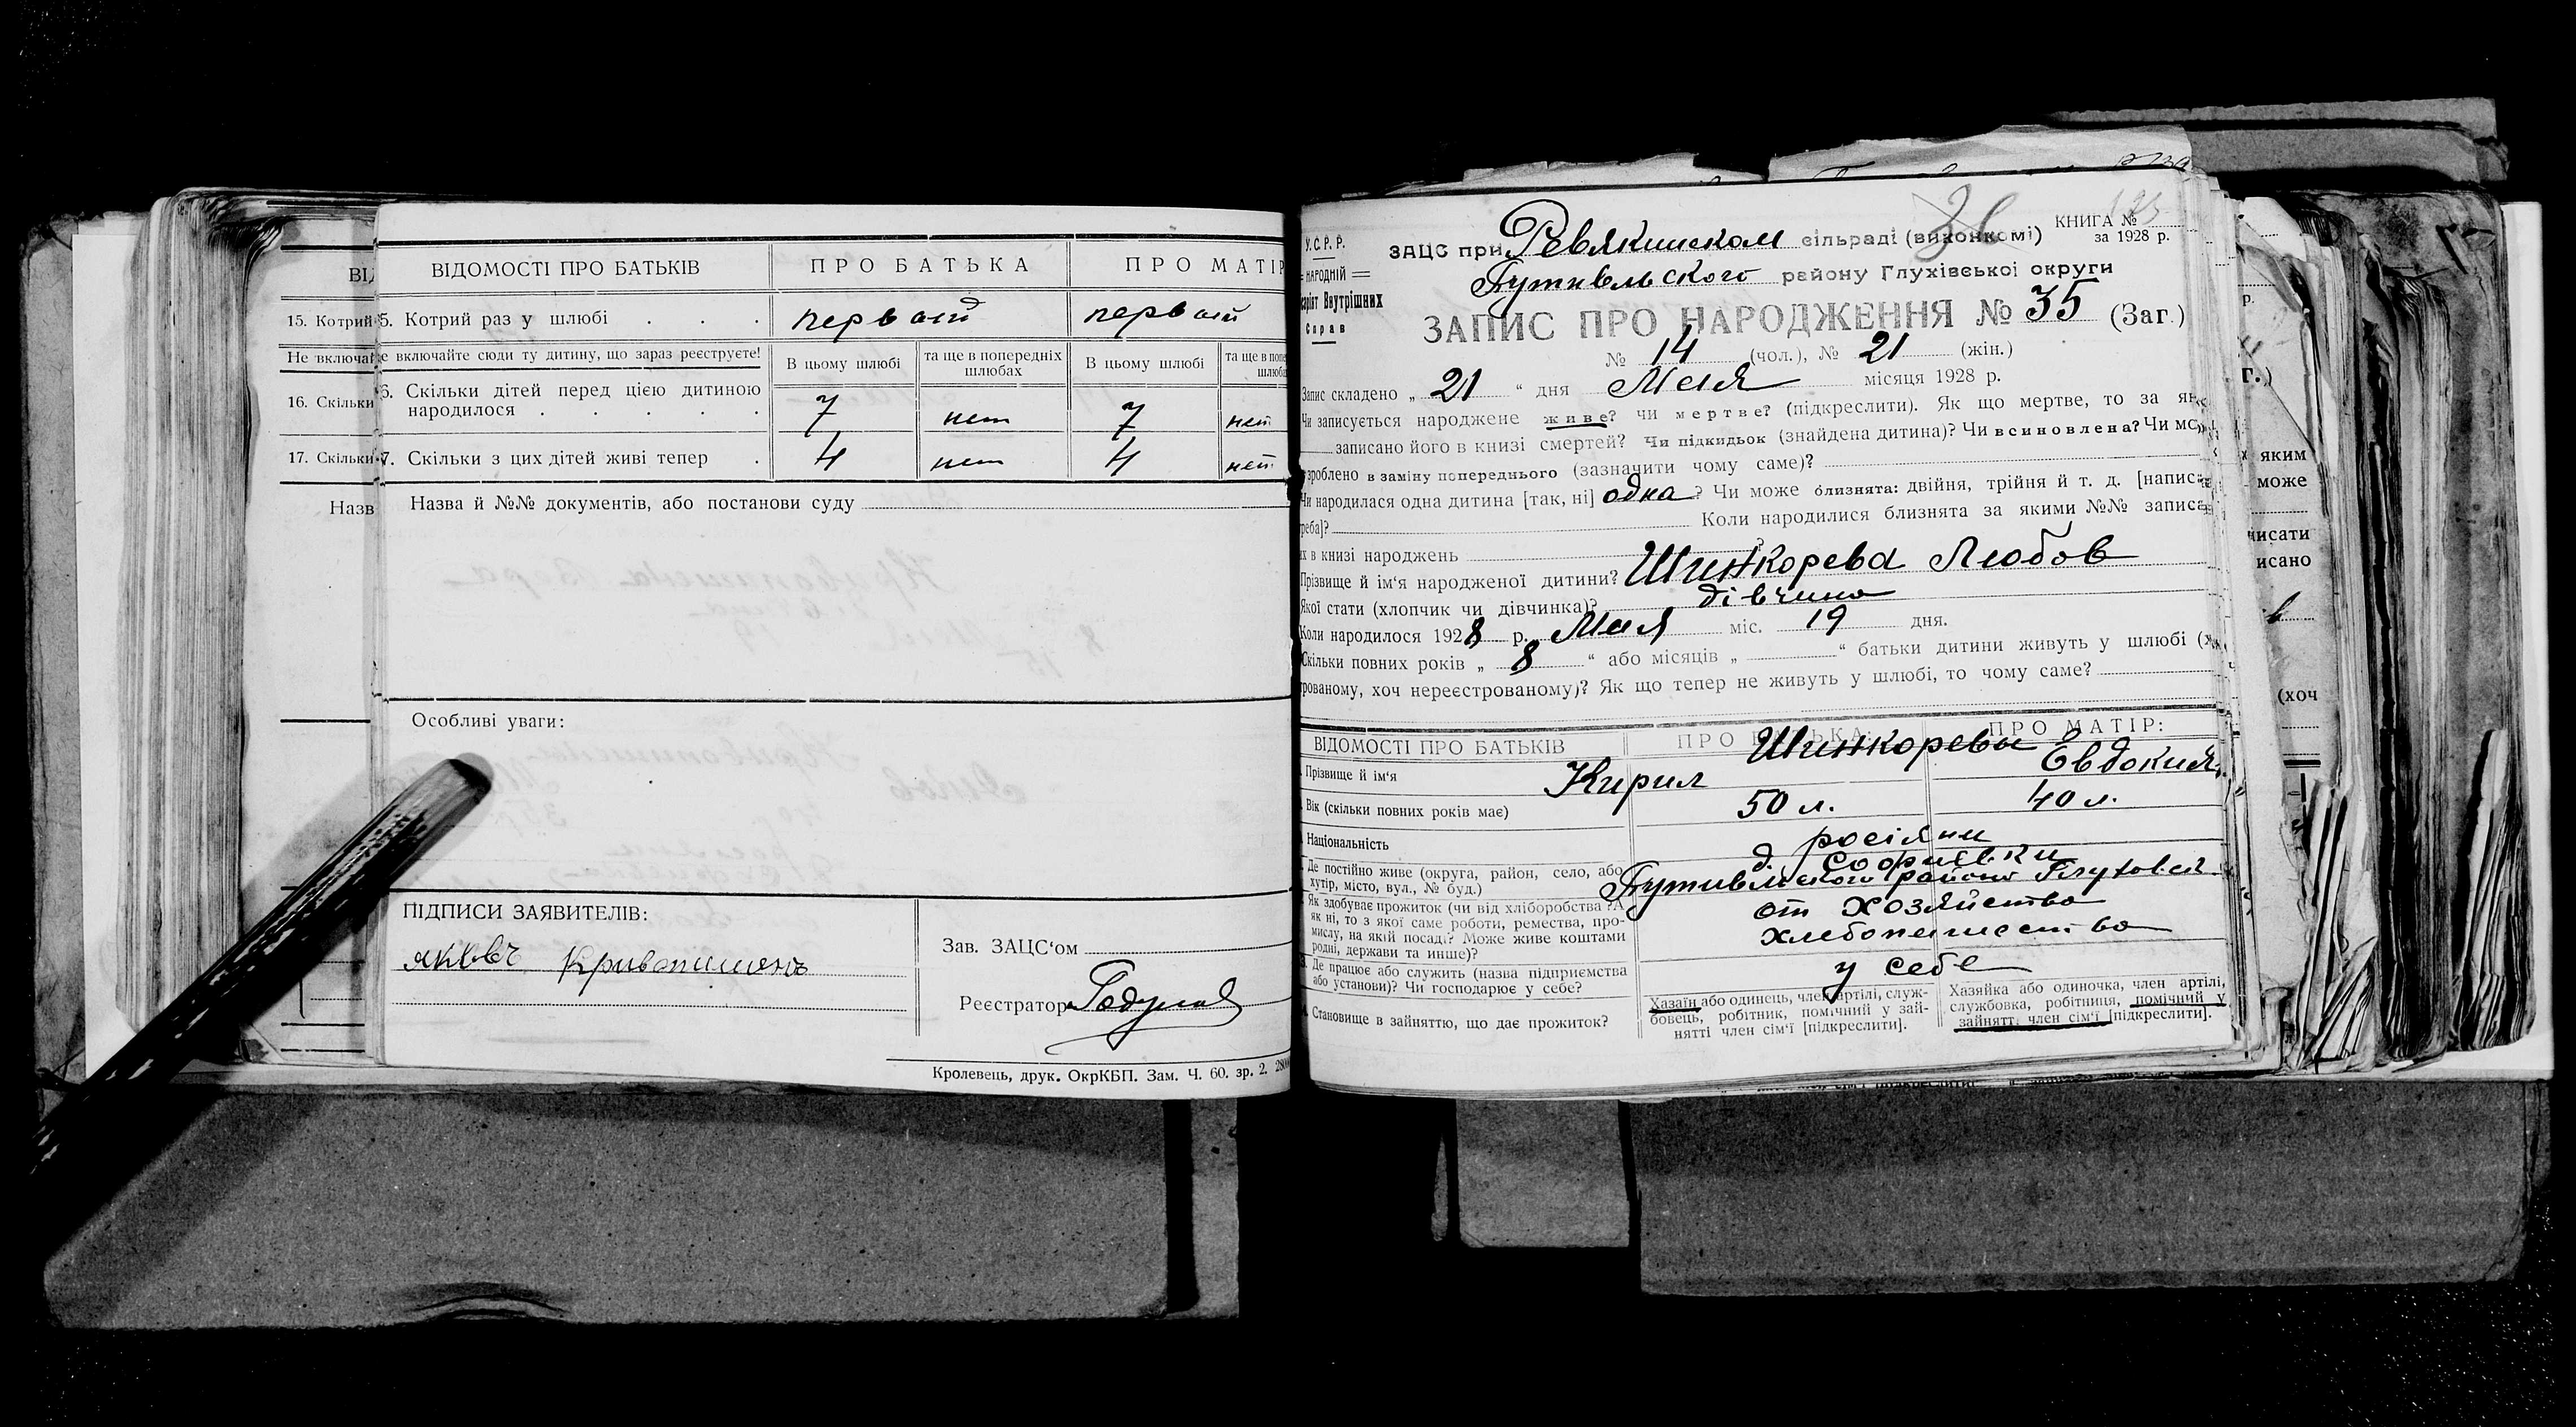 ВІДОМОСТІ ПРО БАТЬКІВ
ПРО БАТЬКА
ПРО МАТІР
15. Котрий
5. Котрий раз у шлюбі . . .
первый
первый
Не включай
е включайте сюди ту дитину, що зараз реєструєте!
В цьому шлюбі
та ще в попередніх шлюбах
В цьому шлюбі
та ще в попе
шлюба
16. Скільки
6. Скільки дітей перед цією дитиною
народилося . . . . .
7
нет
7
нет
17. Скільки
7. Скільки з цих дітей живі тепер .
4
нет
4
нет
Назв
Назва й №№ документів, або постанови суду
Особливі уваги:
ПІДПИСИ ЗАЯВИТЕЛІВ:
Зав. ЗАЦС'ом
Реєстратор
Кролевець, друк. ОкрКБП. Зам. Ч. 60. зр. 2.
У.С.Р.Р.
НАРОДНІЙ
Внутрішних
Справ
ЗАЦС при Ревякинском сільраді (виконкомі)
КНИГА №
за 1928 р.
Путивльского району Глухівської округи
ЗАПИС ПРО НАРОДЖЕННЯ № 35 (Заг.)
№ 14 (чол.), № 21 (жін.)
Запис складено „ 21 “ дня Мая місяця 1928 р.
Чи записується народжене живе? чи мертве? (підкреслити). Як що мертве, то за як
записано його в книзі смертей? Чи підкидьок (знайдена дитина)? Чи всиновлена? Чи мо
зроблено в заміну попереднього (зазначити чому саме)?
Чи народилася одна дитина [так, ні] одна? Чи може близнята: двійня, трійня й т. д. [напис
треба]? Коли народилися близнята за якими №№ запис
їх в книзі народжень
Прізвище й ім'я народженої дитини? Шинкорева Любов
Якої стати (хлопчик чи дівчинка)? дівчина
Коли народилося 1928 р. Мая міс. 19 дня.
Скільки повних років „ 8 “ або місяців „ “ батьки дитини живуть у шлюбі (х
рованому, хоч нереєстрованому)? Як що тепер не живуть у шлюбі, то чому саме?
ВІДОМОСТІ ПРО БАТЬКІВ
ПРО МАТІР:
Шинкоревы
Прізвище й ім'я
Кирил
Евдокия
Вік (скільки повних років має)
50 л.
40 л.
Національність
росіяни
Де постійно живе (округа, район, село, або
хутір, місто, вул., № буд.)
д. Софиевки
Путивльского района
Як здобуває прожиток (чи від хліборобства? А
як ні, то з якої саме роботи, ремества, про-
мислу, на якій посаді? Може живе коштами
родні, держави та инше)?
от хозяйства
хлебопашество
3. Де працює або служить (назва підприємства
або установи)? Чи господарює у себе?
у себе
4. Становище в зайняттю, що дає прожиток?
Хазаїн або одинець, член артілі, служ-
бовець, робітник, помічний у зай-
нятті член сім'ї [підкреслити].
Хазяйка або одиночка, член артілі,
службовка, робітниця, помічний у
зайнятті член сім'ї [підкреслити].
яким
може
писати
исано
(хоч